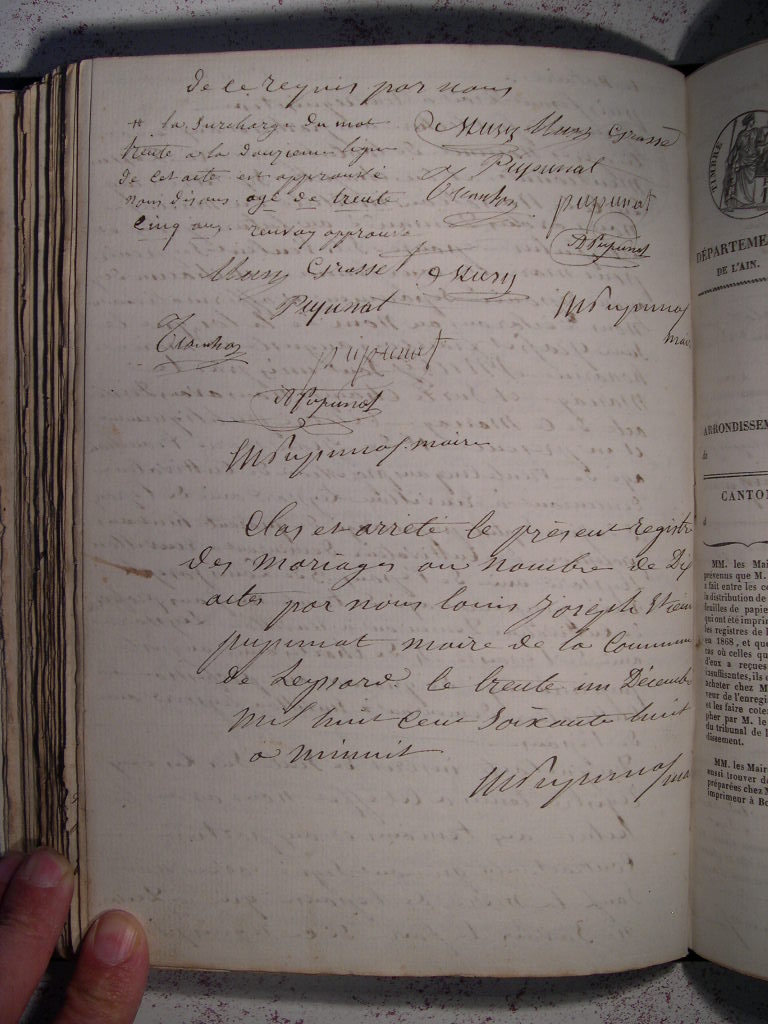 de ce requis par nous
# la surcharge du mot
trente a la douzieme ligne
de cet acte est approuvée
nous disons agé de trente
cinq ans. renvoy approuvé
Musy Grosset
Pupunat
pupunat
A Pupunat
Grosset
Pupunat
pupunat
A Pupunat
Pupunat
mair
Pupunat maire
Clos et arrêté le présent registr
des mariages au nombre de Dix
actes par nous louis joseph
pupunat maire de la Commune
de Leyssard le trente un Décembr
mil huit cent soixante huit
a minuit
Pupunat ma
TIMBRE
DÉPARTEME
DE L'AIN.
ARRONDISSEM
d
CANTO
d
MM. les Mai
prévenus que M.
a fait entre les co
la distribution de
feuilles de papie
qui ont été imprim
les registres de l
en 1868, et que
cas où celles qu
d'eux a reçues
insuffisantes, ils
acheter chez M
veur de l'enregi
et les faire cote
pher par M. le
du tribunal de l
dissement.
MM. les Mair
aussi trouver de
préparées chez M
imprimeur à Bo